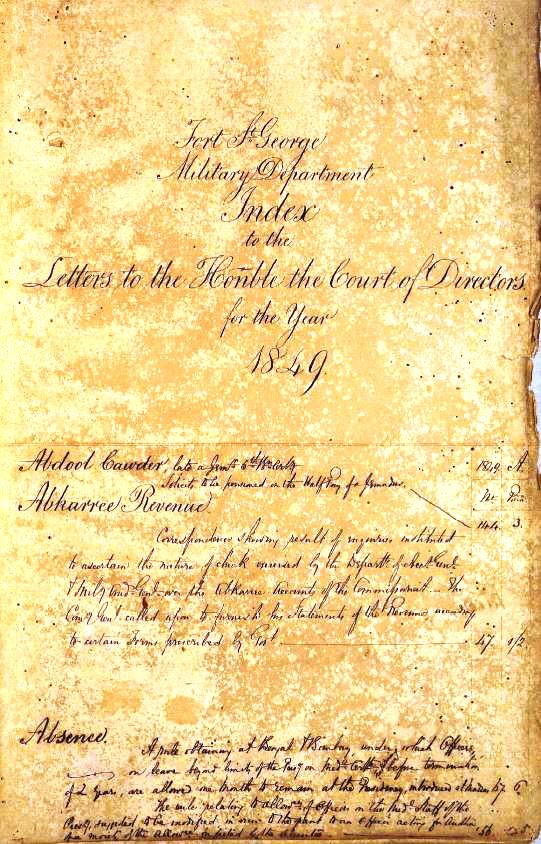 Fort St George
Military Department
Index
to the
Letters to the Honble the Court of Directors
for the Year
1849.
Abdool Cawder, late a Jemr. 6th
1849. A
Solicits to be pensioned on the Half Pay of a Jemadar
No Para
Abkarree Revenue
144. 3.
Correspondence shewing result of inquiries instituted
to ascertain the nature of check exercised by the Departts. of Acct. Genl.
& Mily Audr. Genl. over the Abkarree Accounts of the Commissariat. The
Comy Genl. called upon to furnish his statements of the Revenue according
to certain Forms prescribed by Govt.
47. 1/2
Absence.
A rule obtaining at Bengal & Bombay, under which Officers
on leave beyond limits of the Presy on Medl. Certte. before termination
of 2 Years, are allowed one month to remain at the Presidency, introduced at Madras 47 6
The rule relating to allowces of Officers on the Medl. Staff of this
Presy, suggested to be modified in view to the grant to an Officer acting for another
of a moiety of the allowces
56